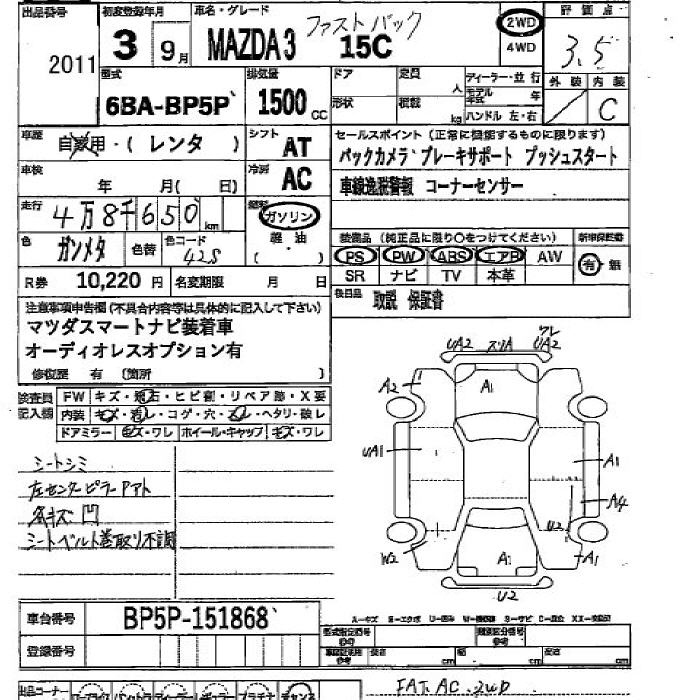 出品番号 初度登録年月 車名・グレード 評価点
2011 3 9月 MAZDA3 ファストバック 15C 2WD 4WD 3.5
型式 排気量 ドア 定員 人 ディーラー・並行 外装 内装
6BA-BP5P 1500cc 形状 積載 kg モデル年式 年 ハンドル 左・右 C
車歴 自家用・(レンタ) シフト AT
セールスポイント (正常に機能するものに限ります)
車検 年 月( 日) 冷房 AC
バックカメラ ブレーキサポート プッシュスタート
車線逸脱警報 コーナーセンサー
走行 4万8千650km 燃料 ガソリン 軽油 ( )
色 ガンメタ 色替 色コード 42S
装備品 (純正品に限り〇をつけてください) 新車保証書
PS PW ABS エアB AW 有・無
SR ナビ TV 本革
R券 10,220円 名変期限 月 日
後日品 取説 保証書
注意事項申告欄(不具合内容等は具体的に記入して下さい)
マツダスマートナビ装着車
オーディオレスオプション有
修復歴 有 (箇所 )
検査員記入欄 FW キズ・飛石・ヒビ割・リペア跡・X要
内装 キズ・汚レ・コゲ・穴・スレ・ヘタリ・破レ
ドアミラー キズ・ワレ ホイール・キャップ キズ・ワレ
シートシミ
左センターピラーアト
各キズ凹
シートベルト巻取り不調
UA2 スリA UA2 ワレ
A2 A1
UA1 A1
A4
U2
W2 A1 A1
U2
車台番号 BP5P-151868
登録番号
A-キズ E-エクボ U-凹み W-補修跡 S-サビ C-腐食 XX-交換済
型式指定番号 参考 類別区分番号 参考
長 cm 幅 cm 高 cm
出品コーナー
FAT. AC. 2WD